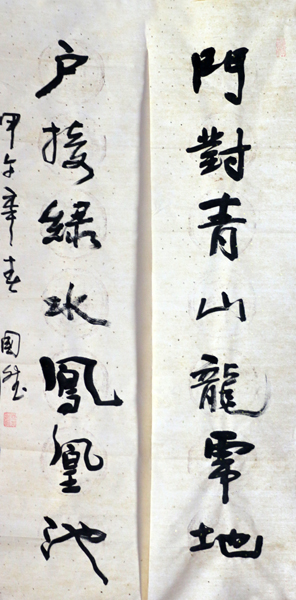 門對青山龍虎地
户接綠水鳳凰池
甲午年春 国